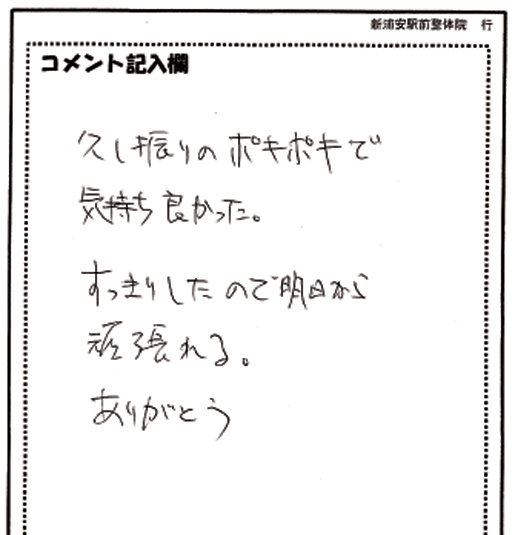 新浦安駅前整体院 行
コメント記入欄
久し振りのポキポキで
気持ち良かった。
すっきりしたので明日から
頑張れる。
ありがとう